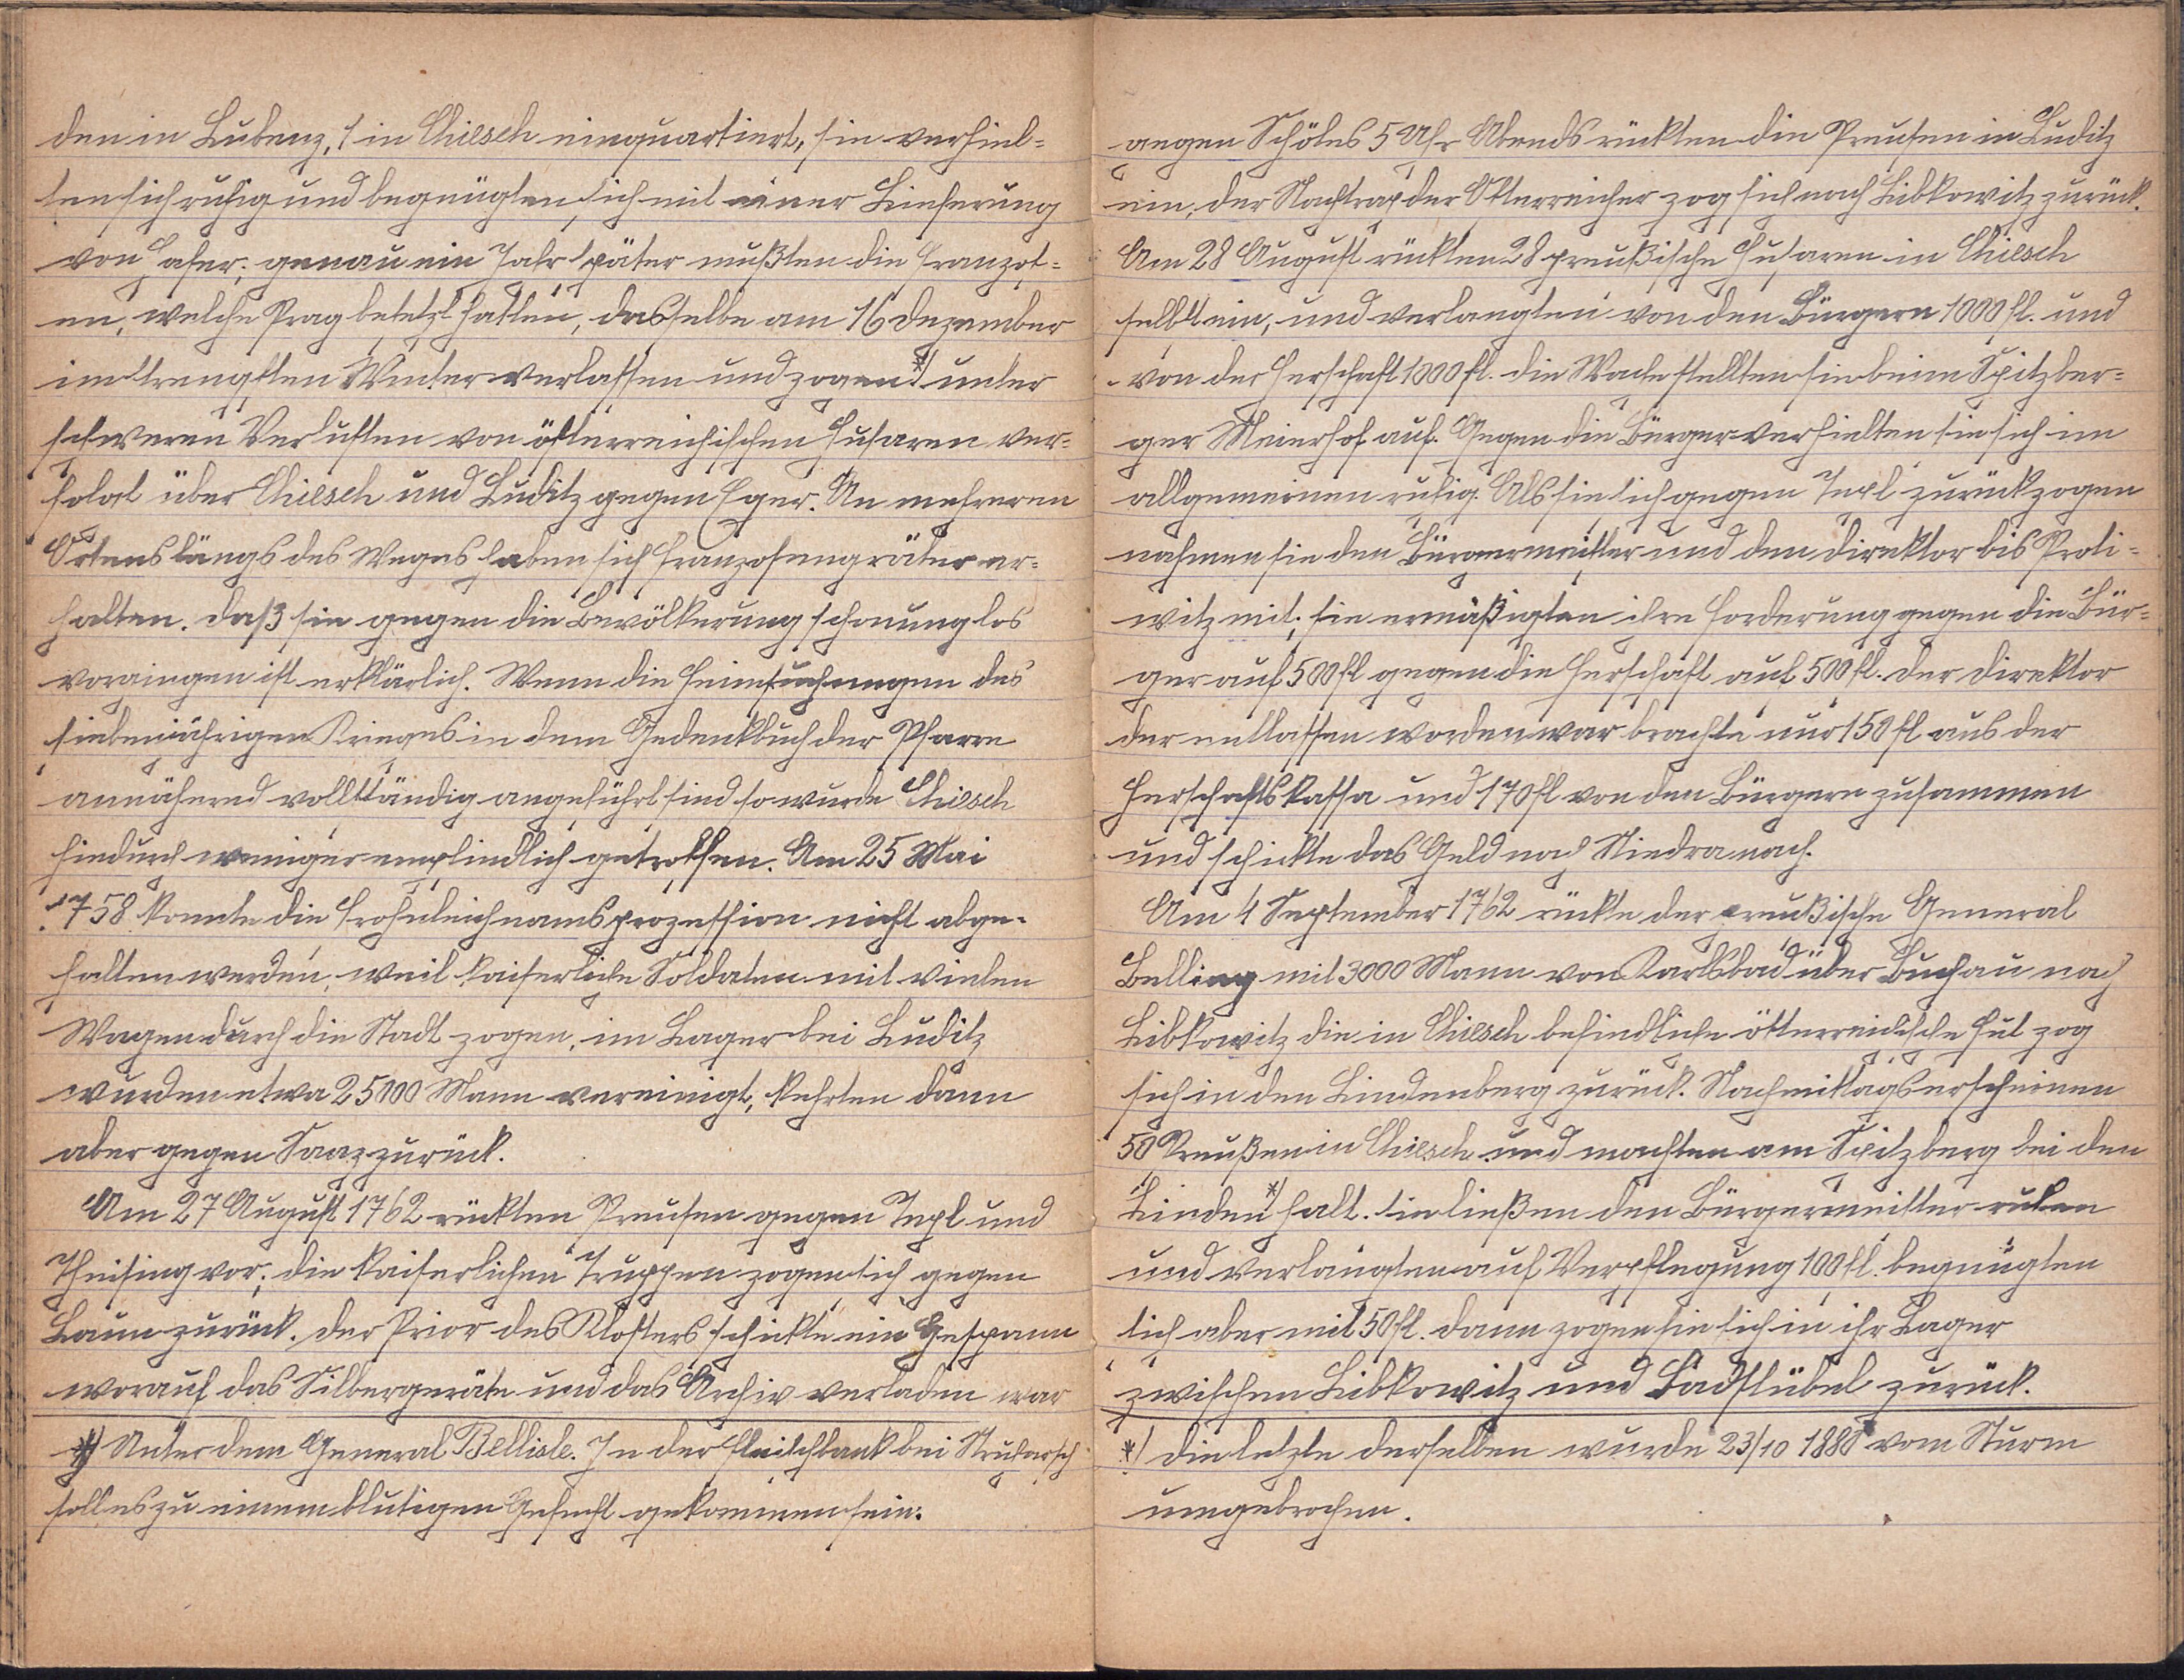 den in Lubenz, 1 in Chiesch einquartiert, sie verhiel-
ten sich ruhig und begnügten sich mit einer Lieferung
von Hafer; genau ein Jahr später mußten die Franzos-
en, welche Prag besetzt hatten, dasselbe am 16 Dezember
im strengsten Winter verlassen und zogen *) unter
schweren Verlusten von österreichischen Husaren ver-
folgt über Chiesch und Luditz gegen Eger. An mehreren
Ortens längs des Weges haben sich Franzosengräber er-
halten. Daß sie gegen die Bevölkerung schonunglos
vorgingen ist erklärlich. Wenn die Heimsuchungen des
siebenjährigen Krieges in dem Gedenkbuch der Pfarre
annähernd vollständig angeführt sind so wurde Chiesch
hiedurch weniger empfindlich getroffen. Am 25 Mai
1758 konnte die Frohnleichnamsprozession nicht abge-
halten werden, weil kaiserliche Soldaten mit vielen
Wagen durch die Stadt zogen, im Lager bei Luditz
wurden etwa 25000 Mann vereinigt, kehrten dann
aber gegen Saaz zurück.
Am 27 August 1762 rückten Preusen gegen Tepl und
Theising vor; die kaiserlichen Truppen zogen sich gegen
Laun zurück. Der Prior des Klosters schickte ein Gespann
worauf das Silbergeräte und das Archiv verladen war
*) Unter dem General Bellisle. In der Fleischbank bei Struharsch
soll es zu einem blutigen Gefecht gekommen sein.
gegen Schöles 5 Uhr Abends rückten die Preusen in Luditz
ein, der Nachtrap der Österreicher zog sich nach Libkowitz zurück.
Am 28 August rückten 28 preußische Husaren in Chiesch
selbst ein, und verlangten von den Bürgern 1000 fl. und
von der Herschaft 1000 fl. die Wache stellten sie beim Spitzber-
ger Meierhof auf. Gegen die Bürger verhielten sie sich im
allgemeinen ruhig. Als sie sich gegen Tepl zurückzogen
nahmen sie den Bürgermeister und den Direktor bis Proti-
witz mit; sie ermäßigten ihre Forderung gegen die Bür-
ger auf 500 fl gegen die Herschaft auf 500 fl. Der Direktor
der entlassen worden war brachte nur 150 fl aus der
Herschaftskassa und 170 fl von den Bürgern zusammen
und schickte das Geld nach Niedra nach.
Am 4 September 1762 rückte der preußische General
Belling mit 3000 Mann von Karlsbad über Buchau nach
Libkowitz die in Chiesch befindliche österreichische Hut zog
sich in den Lindenberg zurück. Nachmittags erscheinen
50 Preußen in Chiesch und machten am Spitzberg bei den
Linden *) halt. Sie ließen den Bürgermeister rufen
und verlangten auf Verpflegung 100 fl. begnügten
sich aber mit 50 fl. Dann zogen sie sich in ihr Lager
zwischen Libkowitz und Badstübel zurück.
*) die letzte derselben wurde 23/10 1880 vom Sturm
umgebrochen.